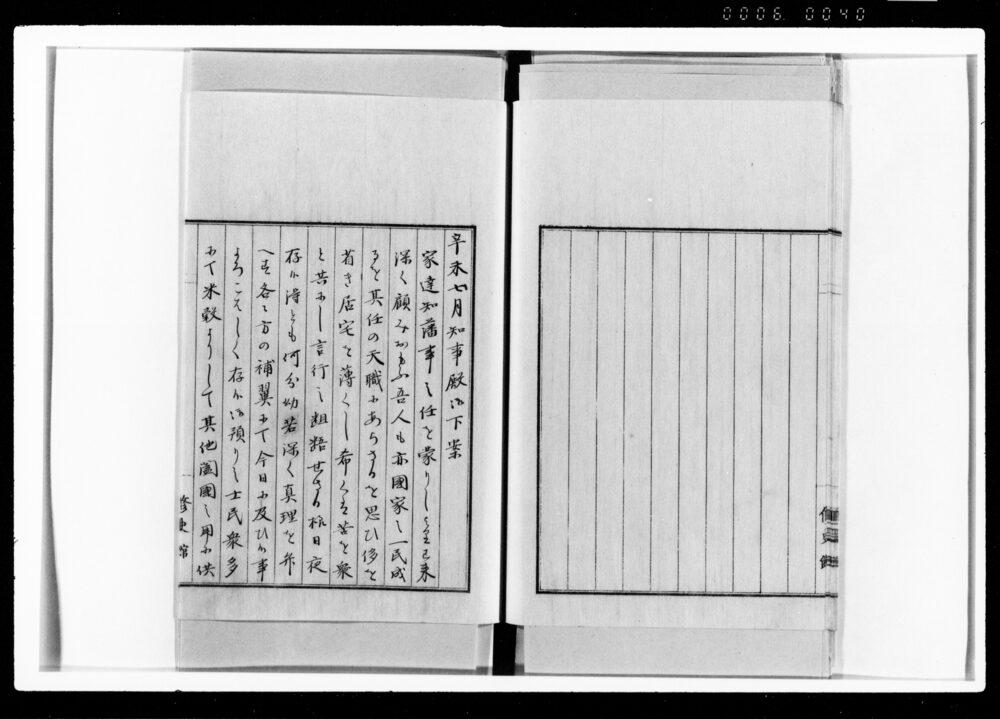 0006 0040
辛未七月知事殿御下案
家達知藩事之任を蒙りしより已来
深く顧みおもふ吾人も亦國家之一民成
るを其任の天職にあらさるを思ひ侈を
省き居宅を薄くし希くは苦を衆
と共にし言行之粗糙せさる様日夜
存候得とも何分幼若深く真理を弁
へす各々方の補翼にて今日に及ひ候事
よろこはしく存候御預り之士民衆多
にて米穀よりして其他闔國之用に供
修史館